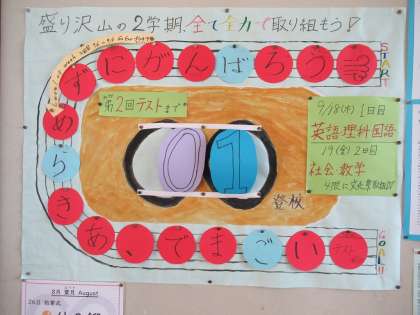 盛り沢山の2学期、全て全力で取り組もう!
ずにがんばろう
START
めらき
第2回テストまで
01
登校
9/18(木) 1日目
英語・理科・国語
19(金) 2日目
社会・数学
あ、でまごい
テスト
GOAL!!
8月 葉月 August
26日 始業式